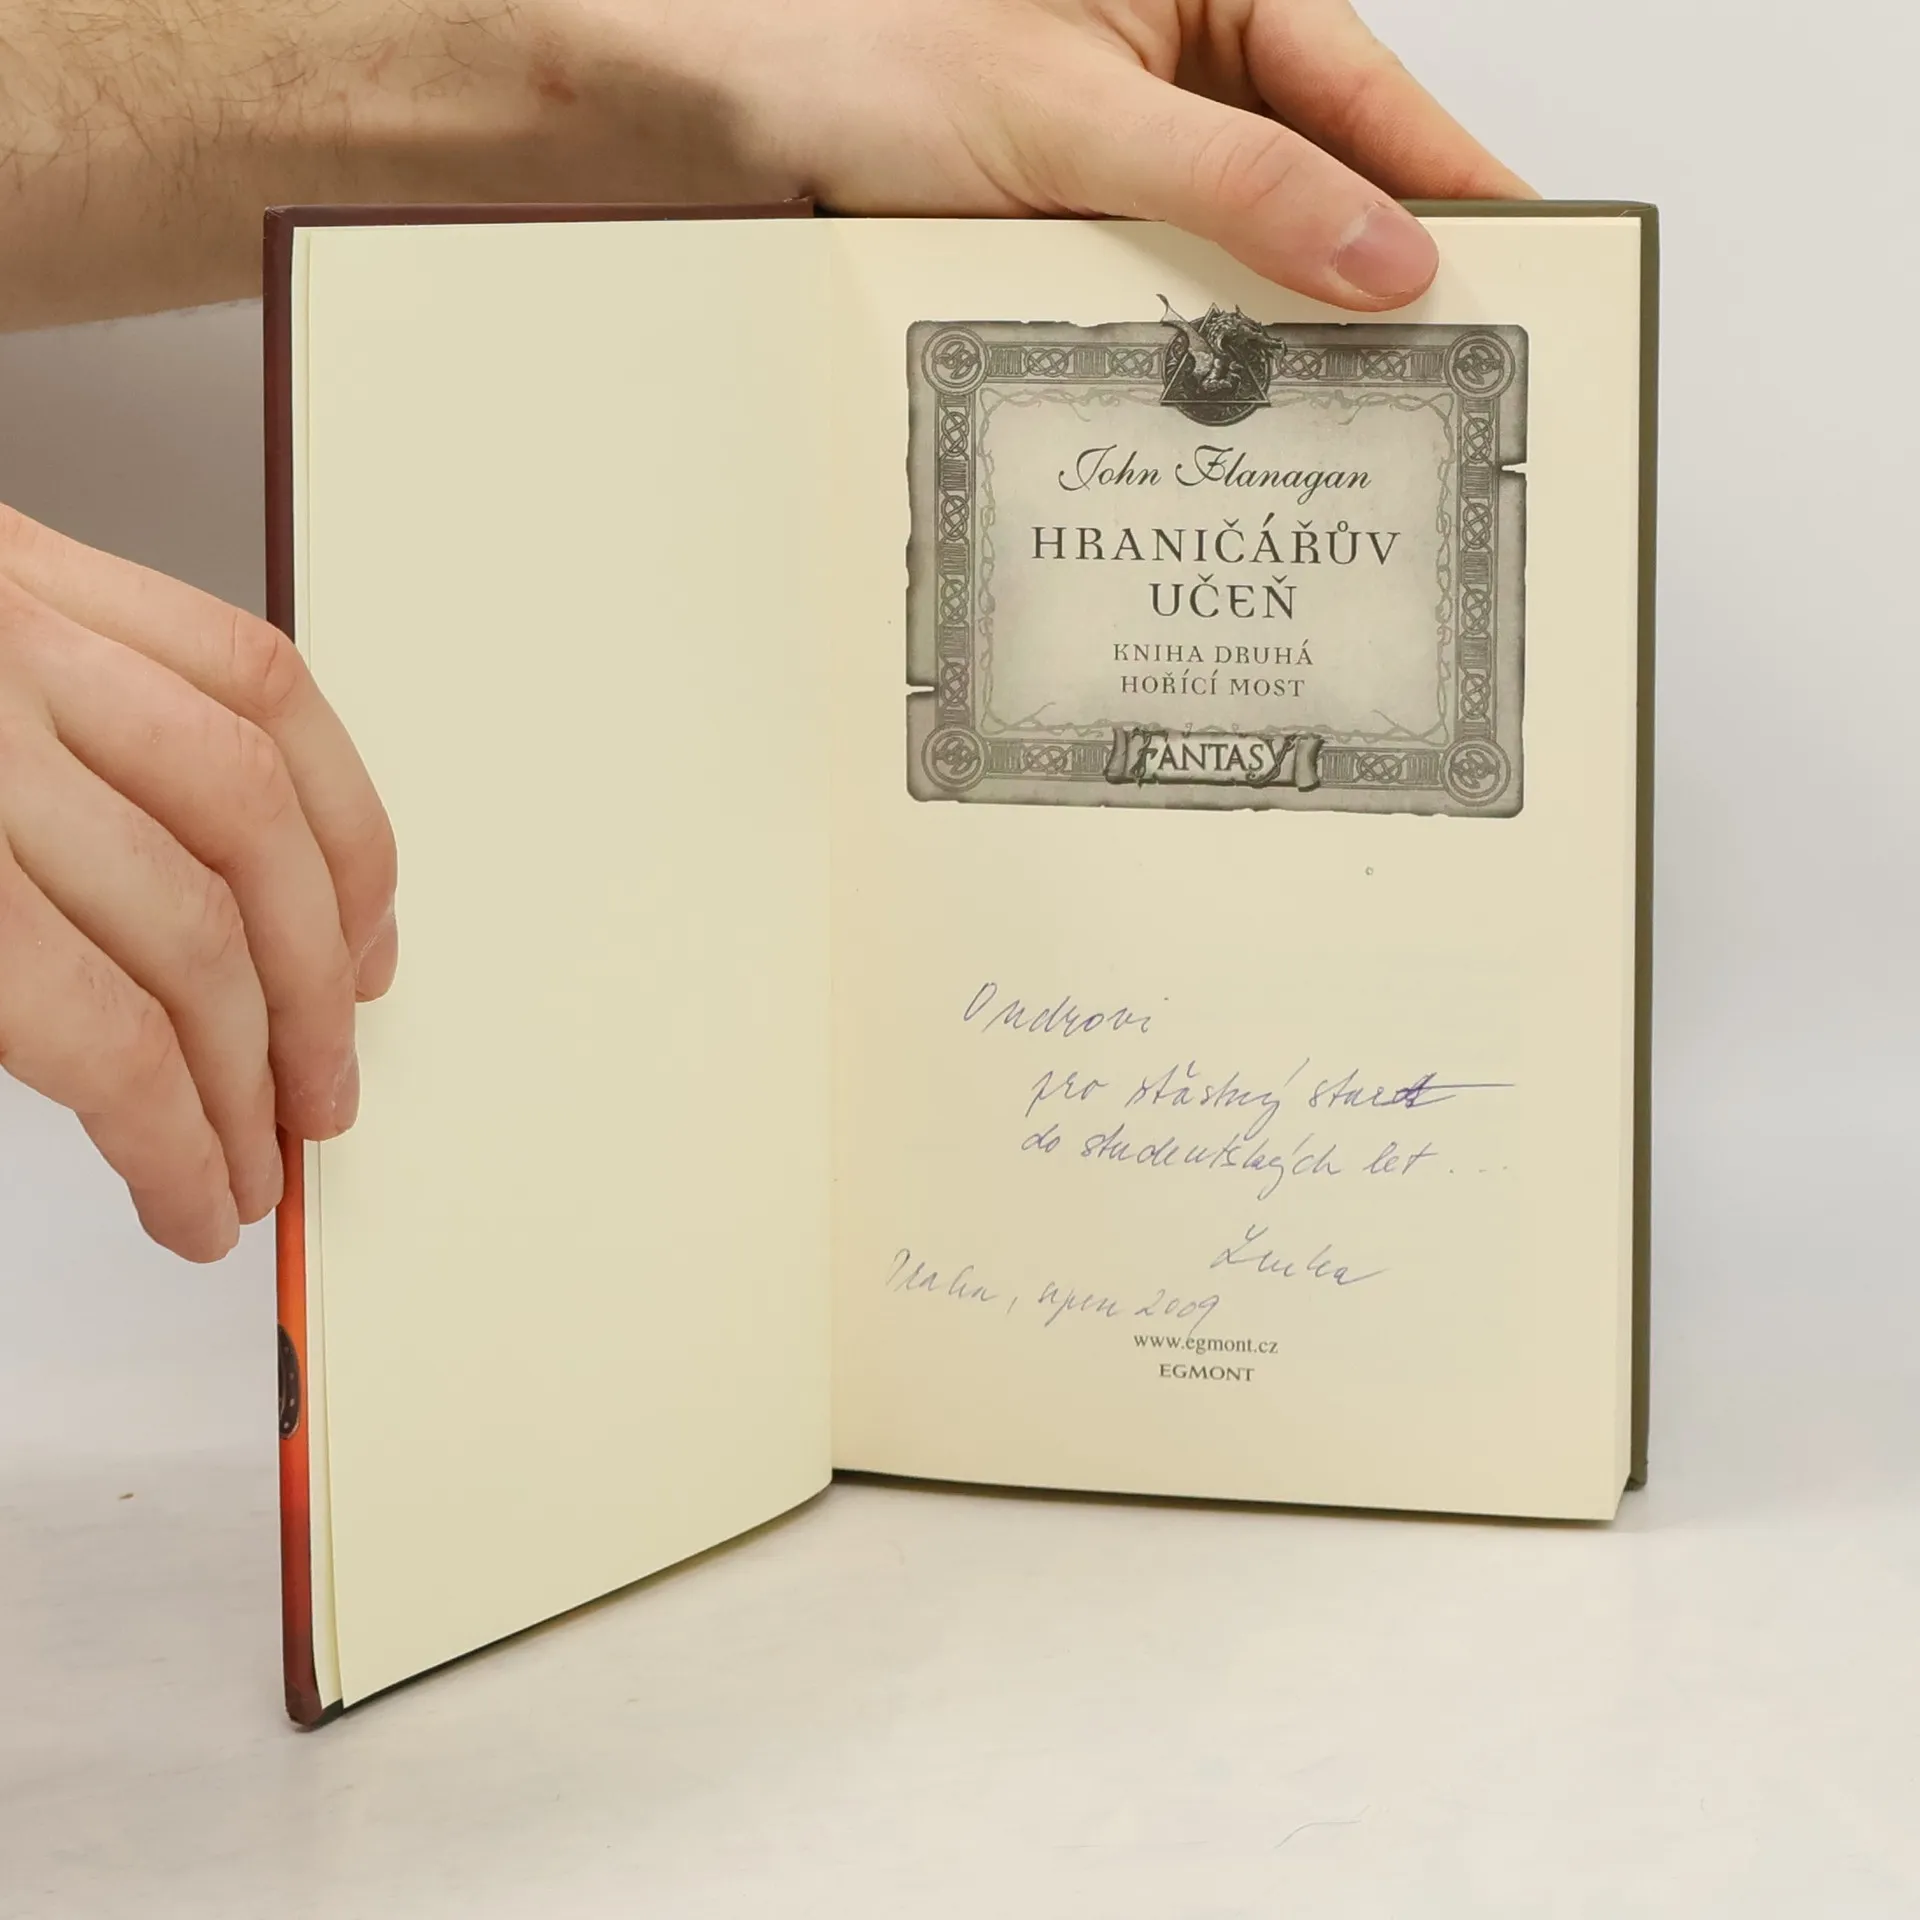 John Flanagan
HRANIČÁŘŮV
UČEŇ
KNIHA DRUHÁ
HOŘÍCÍ MOST
FANTASY
Ondrovi
pro šťastný start
do studentských let ...
Praha, srpen 2009
www.egmont.cz
EGMONT